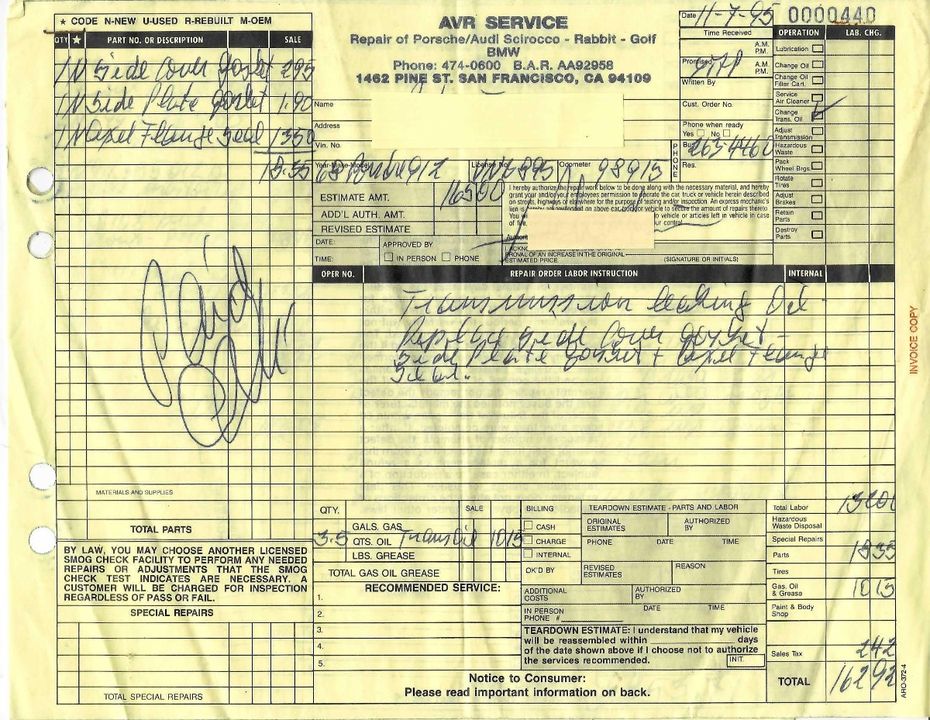 ★ CODE N-NEW U-USED R-REBUILT M-OEM
QTY ★ PART NO. OR DESCRIPTION SALE
1 N Side Cover Gasket 295
1 N Side Plate Gasket 1.90
1 N Axel Flange Seal 1350
Paid
MATERIALS AND SUPPLIES
TOTAL PARTS
BY LAW, YOU MAY CHOOSE ANOTHER LICENSED
SMOG CHECK FACILITY TO PERFORM ANY NEEDED
REPAIRS OR ADJUSTMENTS THAT THE SMOG
CHECK TEST INDICATES ARE NECESSARY. A
CUSTOMER WILL BE CHARGED FOR INSPECTION
REGARDLESS OF PASS OR FAIL.
SPECIAL REPAIRS
TOTAL SPECIAL REPAIRS
AVR SERVICE
Repair of Porsche/Audi Scirocco - Rabbit - Golf
BMW
Phone: 474-0600 B.A.R. AA92958
1462 PINE ST. SAN FRANCISCO, CA 94109
Date 11-7-95 0000440
Time Received
A.M.
P.M.
Promised
A.M.
P.M.
Written By
Cust. Order No.
Phone when ready
Yes No
PHONE
Bus. 263-4460
Res.
Name
Address
Vin. No.
Year-Make-Model 68 Porsche 912 License No. Odometer 98915
ESTIMATE AMT. 16500
ADD'L AUTH. AMT.
REVISED ESTIMATE
DATE:
TIME:
APPROVED BY
IN PERSON PHONE
I hereby authorize the repair work below to be done along with the necessary material, and hereby
grant you and/or your employees permission to operate the car truck or vehicle herein described
on streets, highways or elsewhere for the purpose of testing and/or inspection. An express mechanic's
lien is hereby acknowledged on above car and/or vehicle to secure the amount of repairs thereto
to vehicle or articles left in vehicle in case
PROVAL OF AN INCREASE IN THE ORIGINAL
ESTIMATED PRICE. (SIGNATURE OR INITIALS)
OPERATION LAB. CHG.
Lubrication
Change Oil
Change Oil
Filter Cart.
Service
Air Cleaner
Change
Trans. Oil
Adjust
Transmission
Hazardous
Waste
Pack
Wheel Brgs.
Rotate
Tires
Adjust
Brakes
Retain
Parts
Destroy
Parts
OPER NO. REPAIR ORDER LABOR INSTRUCTION INTERNAL
Transmission leaking Oil
Replace side Cover gasket -
Side Plate Gasket + Axel Flange
Seal.
INVOICE COPY
QTY. SALE
GALS. GAS
3.5 QTS. OIL Trans Oil 1015
LBS. GREASE
TOTAL GAS OIL GREASE
RECOMMENDED SERVICE:
1.
2.
3.
4.
5.
BILLING
CASH
CHARGE
INTERNAL
OK'D BY
TEARDOWN ESTIMATE - PARTS AND LABOR
ORIGINAL
ESTIMATES
AUTHORIZED
BY
PHONE DATE TIME
REVISED
ESTIMATES
REASON
ADDITIONAL
COSTS
AUTHORIZED
BY
IN PERSON
PHONE #
DATE TIME
TEARDOWN ESTIMATE: I understand that my vehicle
will be reassembled within days
of the date shown above if I choose not to authorize
the services recommended. INIT.
Total Labor
Hazardous
Waste Disposal
Special Repairs
Parts 1835
Tires
Gas, Oil
& Grease 1015
Paint & Body
Shop
Sales Tax 242
TOTAL 16292
Notice to Consumer:
Please read important information on back.
ARO-372-4